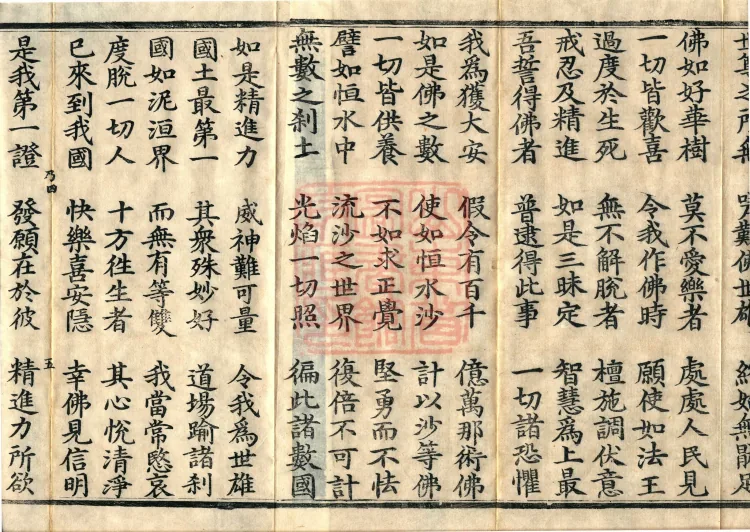 佛如好華樹　莫不愛樂者　處處人民見
一切皆歡喜　令我作佛時　願使如法王
過度於生死　無不解脫者　檀施調伏意
戒忍及精進　如是三昧定　智慧爲上最
吾誓得佛者　普逮得此事　一切諸恐懼
我爲獲大安　假令有百千　億萬那術佛
如是佛之數　使如恒水沙　計以沙等佛
一切皆供養　不如求正覺　堅勇而不怯
譬如恒水中　流沙之世界　復倍不可計
無數之刹土　光焰一切照　徧此諸數國
如是精進力　威神難可量　令我爲世雄
國土最第一　其衆殊妙好　道場踰諸刹
國如泥洹界　而無有等雙　我當常愍哀
度脫一切人　十方徃生者　其心悅清淨
已來到我國　快樂喜安隱　幸佛見信明
乃四　五
是我第一證　發願在於彼　精進力所欲